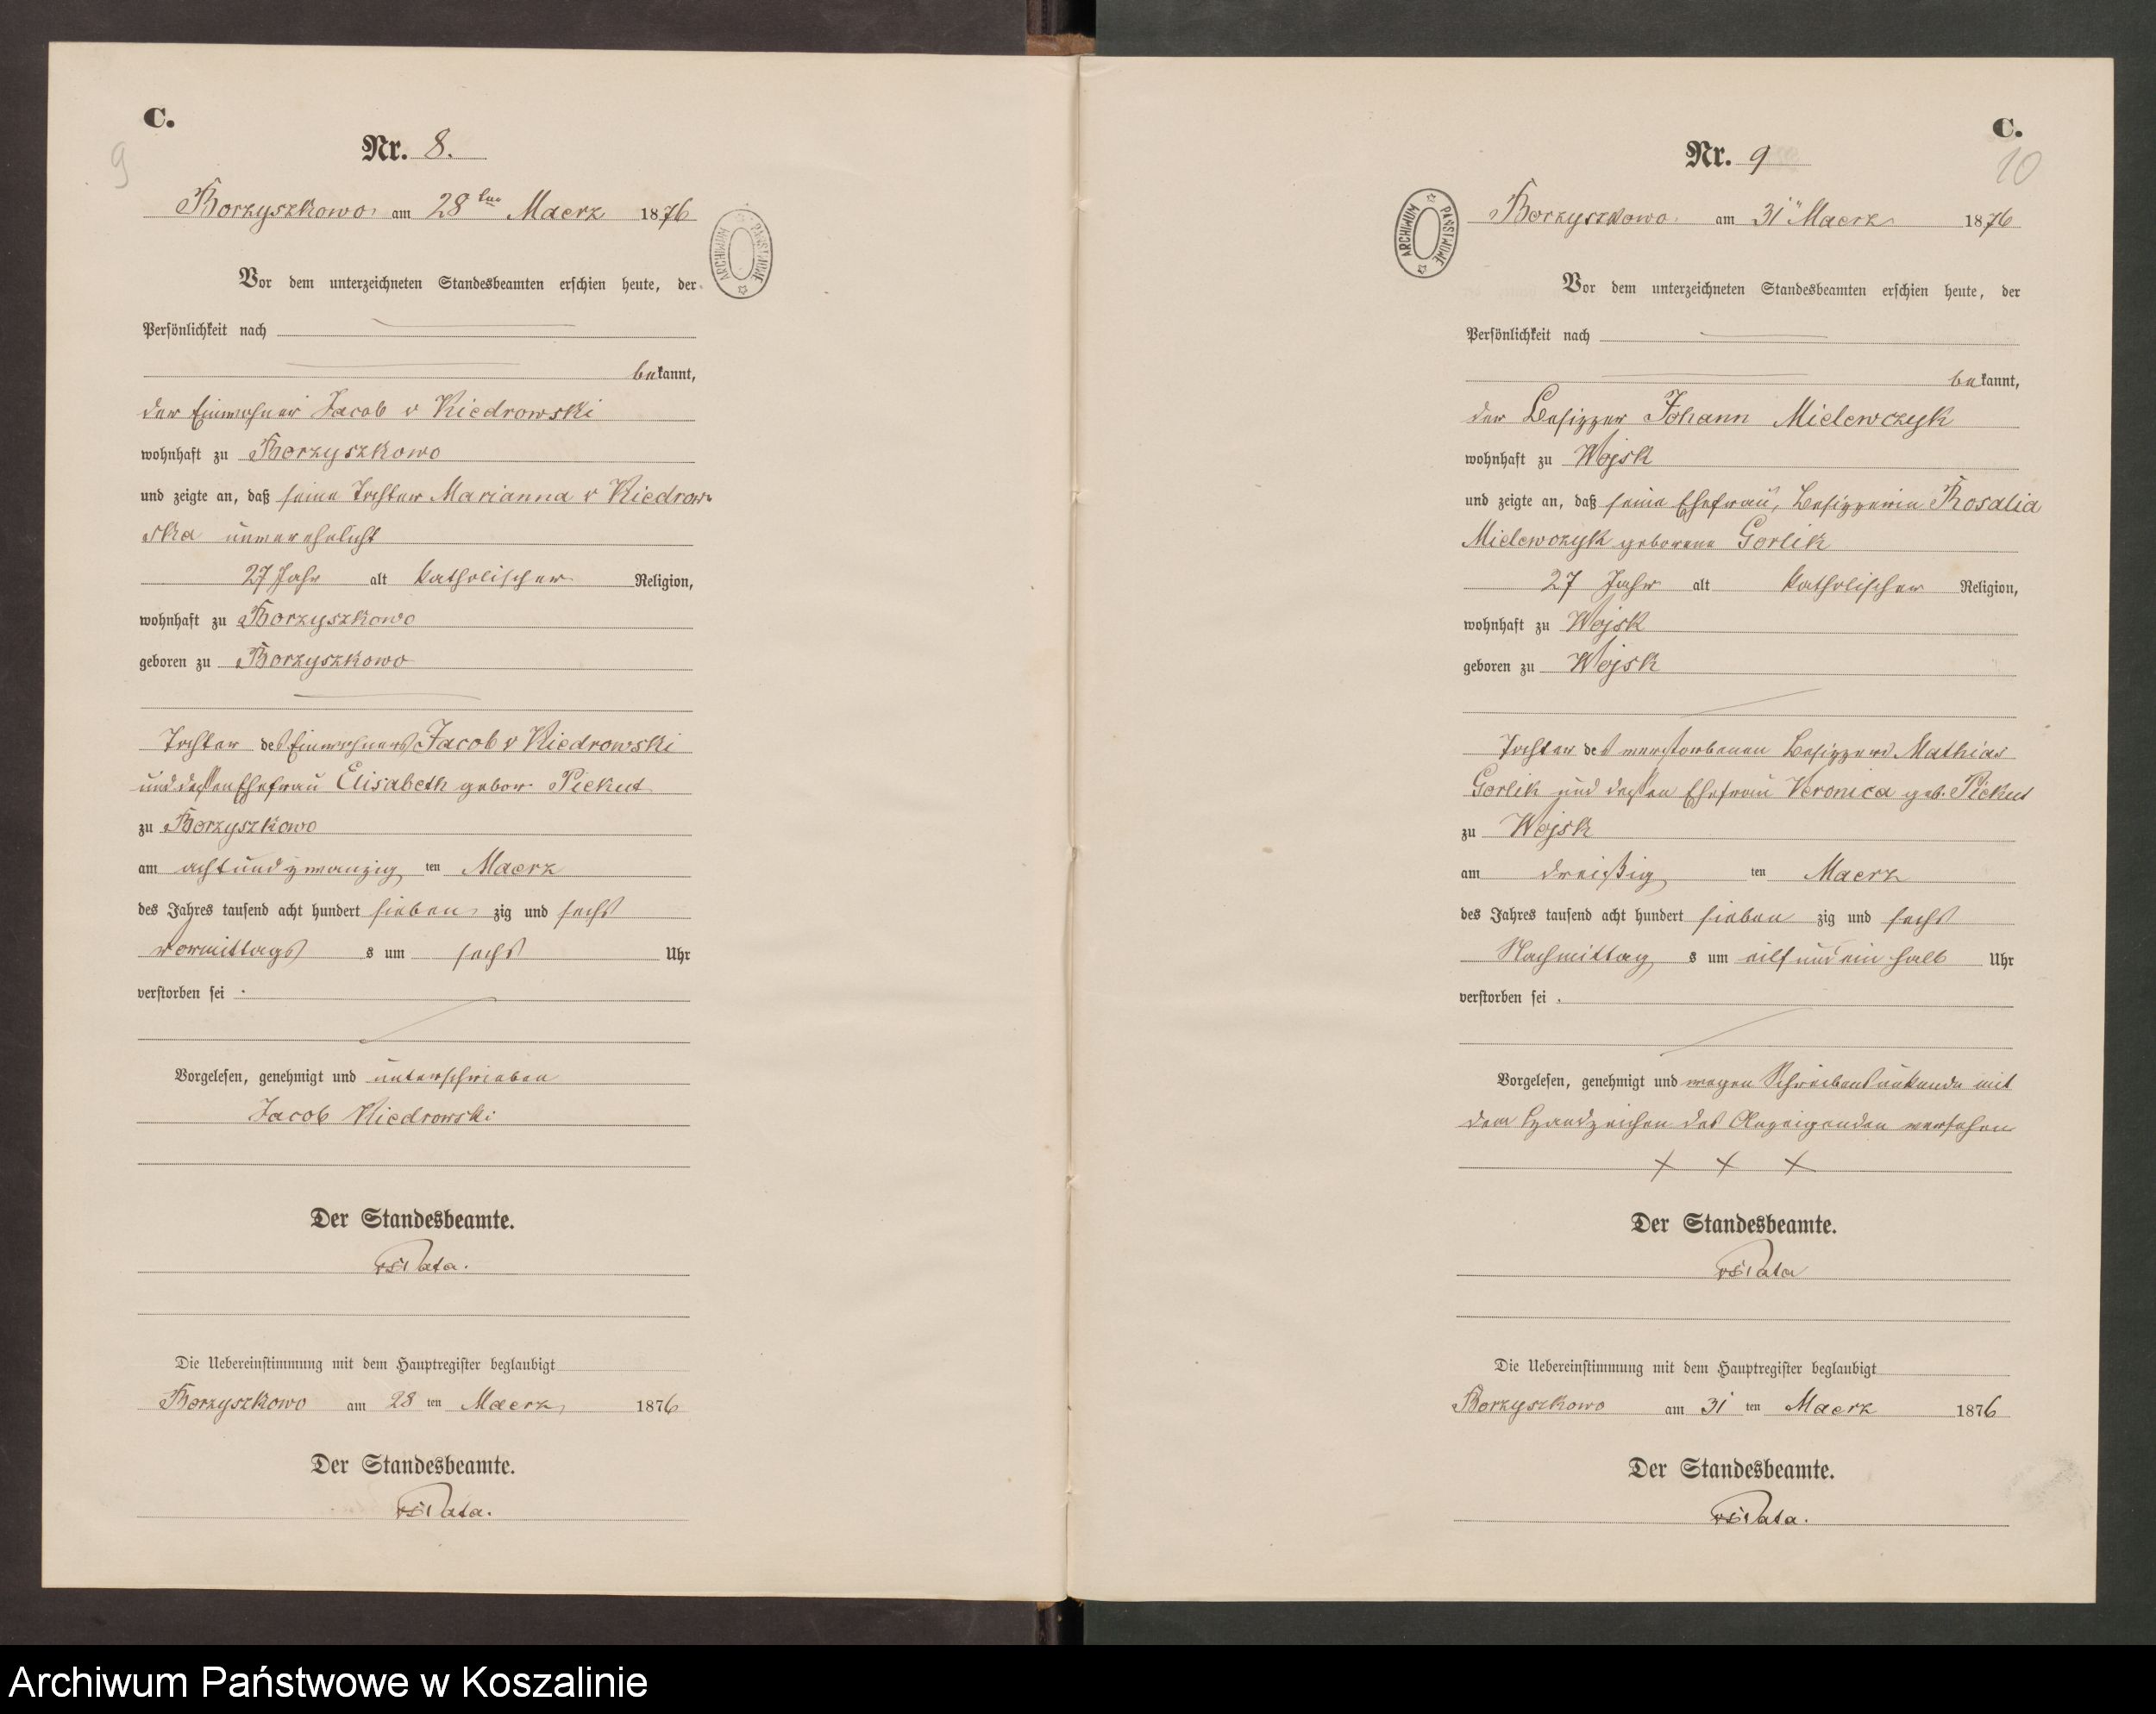 C.
9
Nr. 8.
Borzyszkowo am 28ten Maerz 1876
ARCHIWUM PAŃSTWOWE
Vor dem unterzeichneten Standesbeamten erschien heute, der
Persönlichkeit nach
bekannt,
der Einwohner Jacob v Kiedrowski
wohnhaft zu Borzyszkowo
und zeigte an, daß seine Tochter Marianna v Kiedrow-
ska unverehelicht
27 Jahr alt katholischer Religion,
wohnhaft zu Borzyszkowo
geboren zu Borzyszkowo
Tochter des Einwohners Jacob v Kiedrowski
und dessen Ehefrau Elisabeth gebor. Piekut
zu Borzyszkowo
am achtundzwanzig ten Maerz
des Jahres tausend acht hundert sieben zig und sechs
vormittags s um sechs Uhr
verstorben sei .
Vorgelesen, genehmigt und unterschrieben
Jacob Kiedrowski
Der Standesbeamte.
Die Uebereinstimmung mit dem Hauptregister beglaubigt
Borzyszkowo am 28 ten Maerz 1876
Der Standesbeamte.
C.
10
Nr. 9
Borzyszkowo am 31" Maerz 1876
ARCHIWUM PAŃSTWOWE
Vor dem unterzeichneten Standesbeamten erschien heute, der
Persönlichkeit nach
bekannt,
der Besizzer Johann Mielewczyk
wohnhaft zu Wojsk
und zeigte an, daß seine Ehefrau, Besizzerin Rosalia
Mielewczyk geborene Gorlik
27 Jahr alt katholischer Religion,
wohnhaft zu Wojsk
geboren zu Wojsk
Tochter des verstorbenen Besizzers Mathias
Gorlik und dessen Ehefrau Veronica geb. Piekut
zu Wojsk
am dreißig ten Maerz
des Jahres tausend acht hundert sieben zig und sechs
Nachmittag s um eilf und ein halb Uhr
verstorben sei .
Vorgelesen, genehmigt und wegen Schreibensunkunde mit
dem Handzeichen des Anzeigenden versehen
x x x
Der Standesbeamte.
Die Uebereinstimmung mit dem Hauptregister beglaubigt
Borzyszkowo am 31 ten Maerz 1876
Der Standesbeamte.
Archiwum Państwowe w Koszalinie